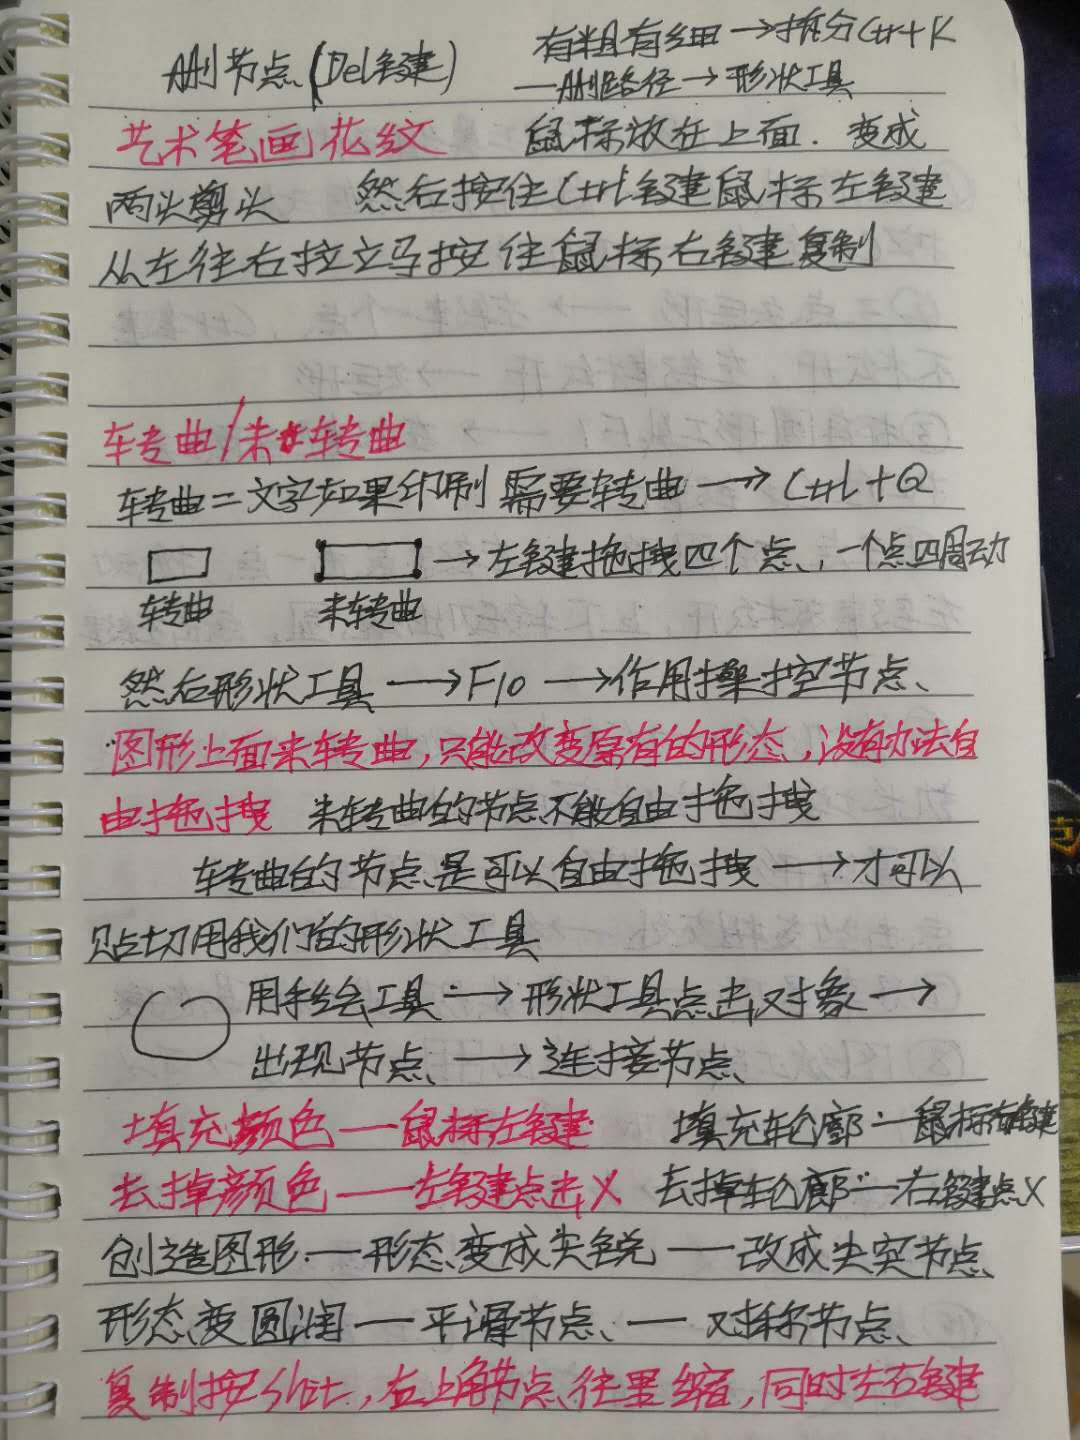 删节点(Del键) 有粗有细→拆分Ctrl+K
一删路径→形状工具
艺术笔画花纹 鼠标放在上面.变成
两头剪头 然后按住Ctrl键鼠标左键
从左往右拉立马按住鼠标右键复制
转曲/未转曲
转曲=文字如果印刷需要转曲→Ctrl+Q
→左键拖拽四个点,一个点四周动
转曲 未转曲
然后形状工具→F10→作用操控节点
图形上面未转曲,只能改变原有的形态,没有办法自
由拖拽 未转曲的节点不能自由拖拽
转曲的节点是可以自由拖拽→才可以
贴切用我们的形状工具
用手绘工具→形状工具点击对象→
出现节点→连接节点
填充颜色—鼠标左键 填充轮廓:—鼠标右键
去掉颜色—左键点击X 去掉轮廓—右键点X
创造图形—形态变成尖锐—改成尖突节点
形态变圆润—平滑节点—对称节点
复制按Shit,右上角节点往里缩,同时左右键